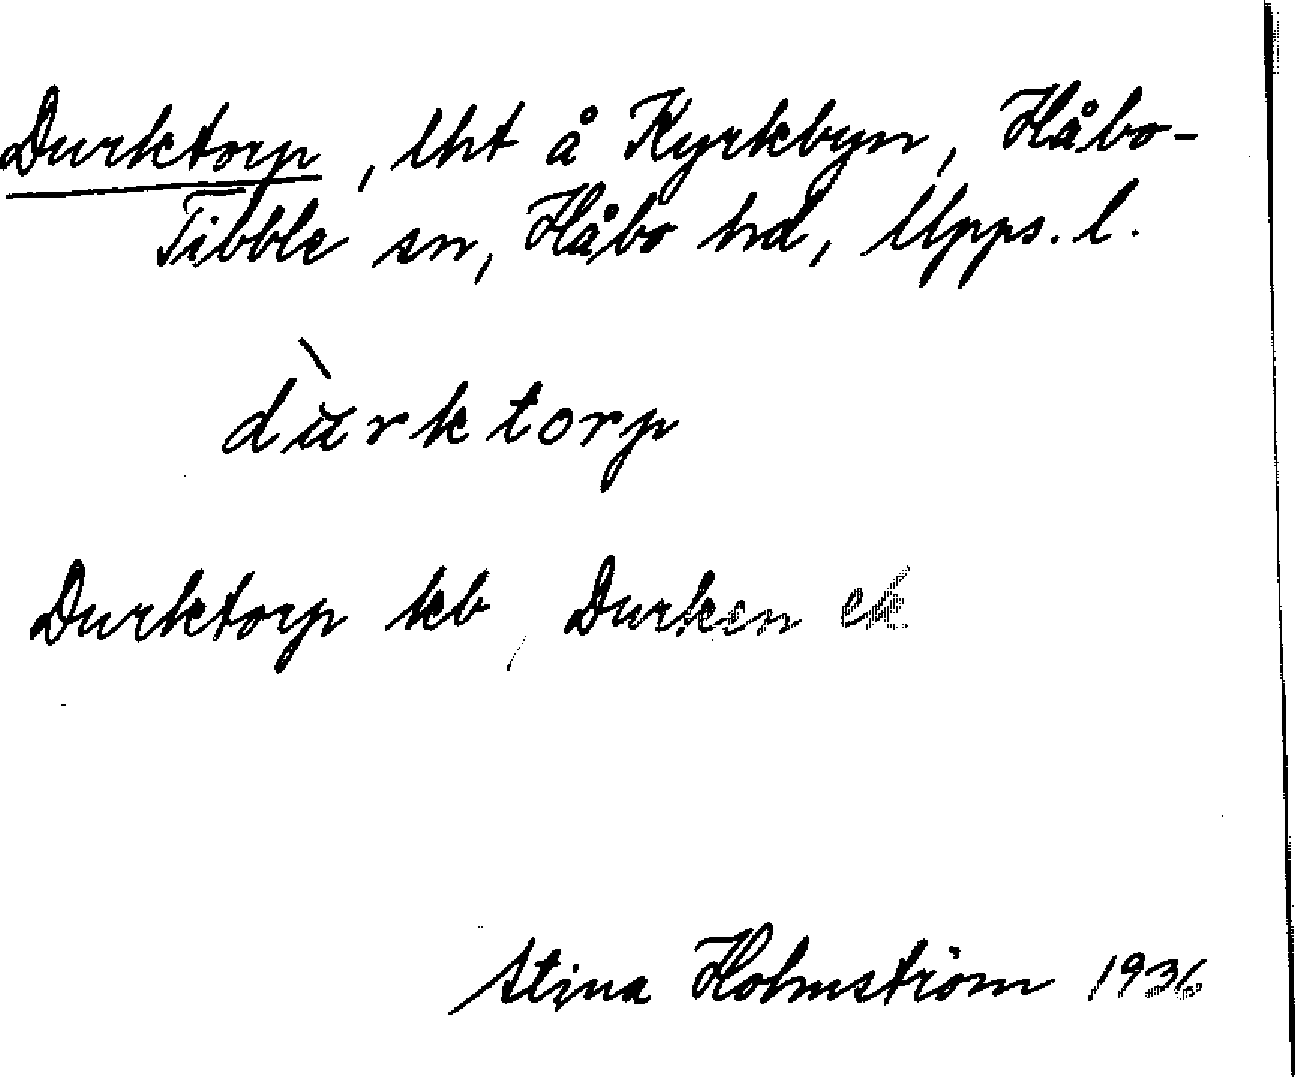 Durktorp, lht å Kyrkbyn, Håbo-
Tibble sn, Håbo hd, Upps. l.
dùrktorp
Durktorp kb, Durken ek
Stina Holmström 1936